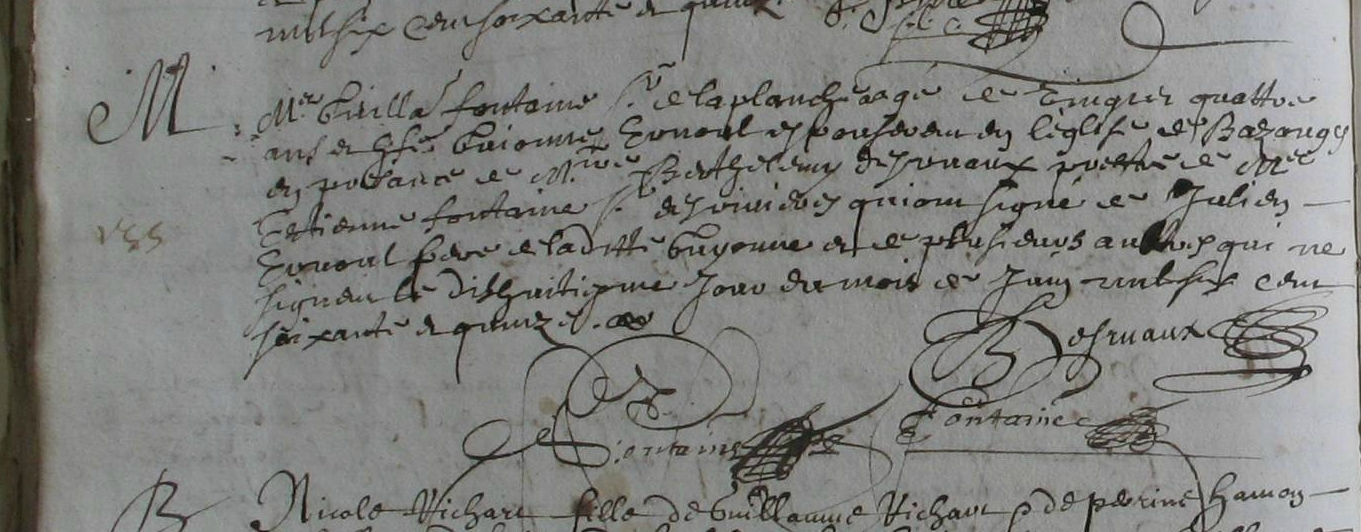 mil six cent soixante et quinze
M
Me Guilla fontaine Sr de la planche aagé de vingt et quattre
ans et hte Guionne Ernoul espouserent en l'eglise de Bazouges
en presance de Mire Berthelemy desruaux prestre de Me
Estienne fontaine Sr des rivieres qui ont signé de Julien
Ernoul frere de laditte Guyonne et de plusieurs autres qui ne
signent le dixhuitiesme Jour du mois de Juin mil six cent
soixante et quinze
B desruaux
fontaine fontaine
B Nicole Richart fille de Guillaume Richart & de perrine hamon